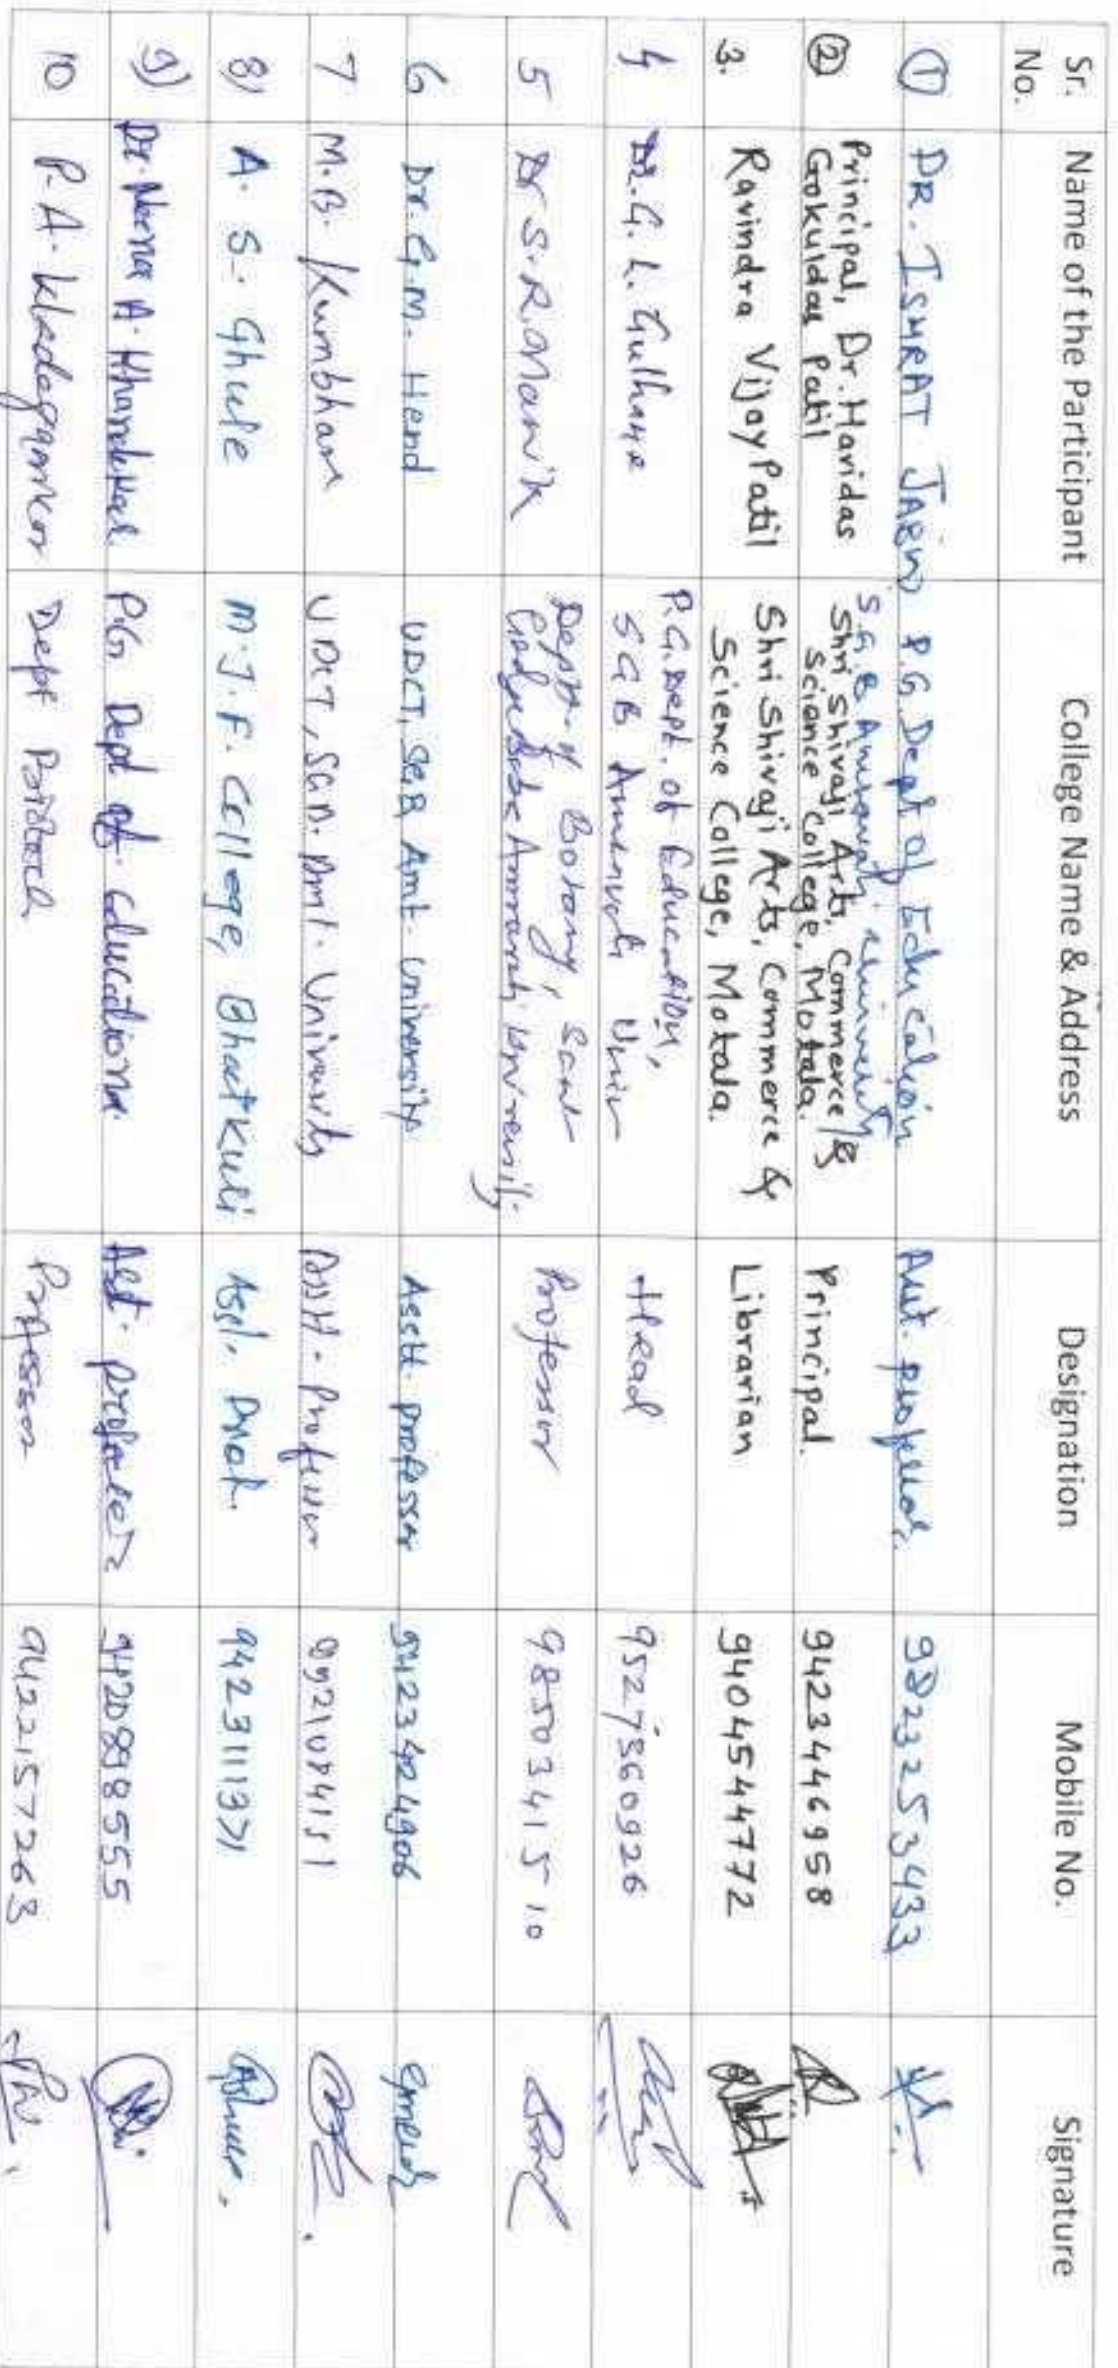 Sr. No. Name of the Participant College Name & Address Designation Mobile No. Signature
① DR. ISHRAT JABIN P.G. Dept of Education S.G.B Amravati University Asst. professor 9823253433
② Principal, Dr. Haridas Gokuldas Patil Shri Shivaji Arts, Commerce & Science College, Motala. Principal. 9423446958
3. Ravindra Vijay Patil Shri Shivaji Arts, Commerce & Science College, Motala. Librarian 9404544772
4 Dr. G. L. Gulhane P.G. Dept. of Education, SGB Amravati Univ Head 9527560926
5 Dr S. R. Manik Deptt. of Botany, Sant Gadge Baba Amravati University. Professor 9850341510
6 Dr. G. M. Hend UDCT, SGB Amt. University Asstt. professor
7 M. B. Kumbhare UDCT, SGB. Amt. University Asstt. Professor
8) A. S. Ghule M. J. F. College, Bhatkuli Asst. Prof. 9423111371
9) Dr. A. P.G. Dept of Education Asst. professor 9420898555
10 P. A. Dept Professor 9422157263